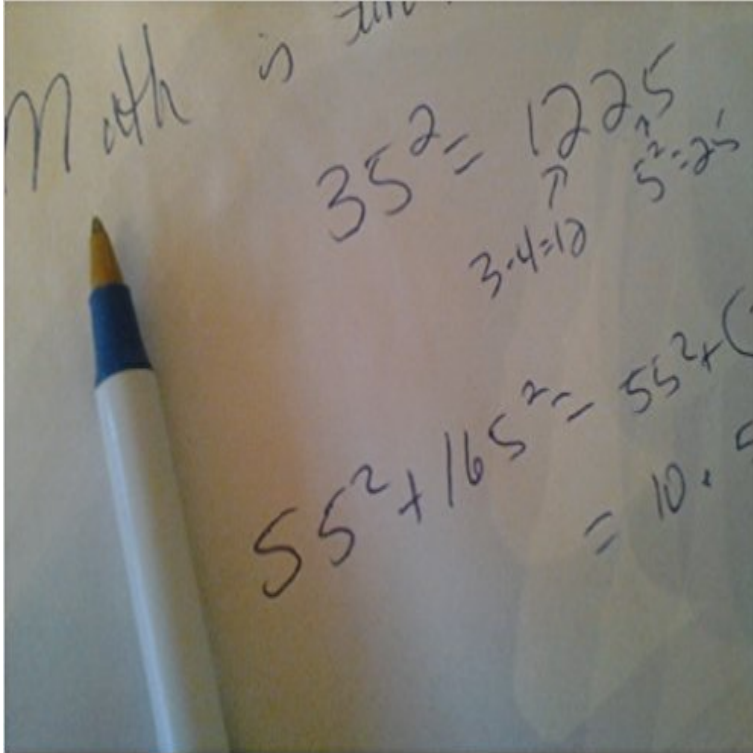 Math is
35² = 1225
3·4=12
5²=25
55² + 165² = 55² + (
= 10 · 5